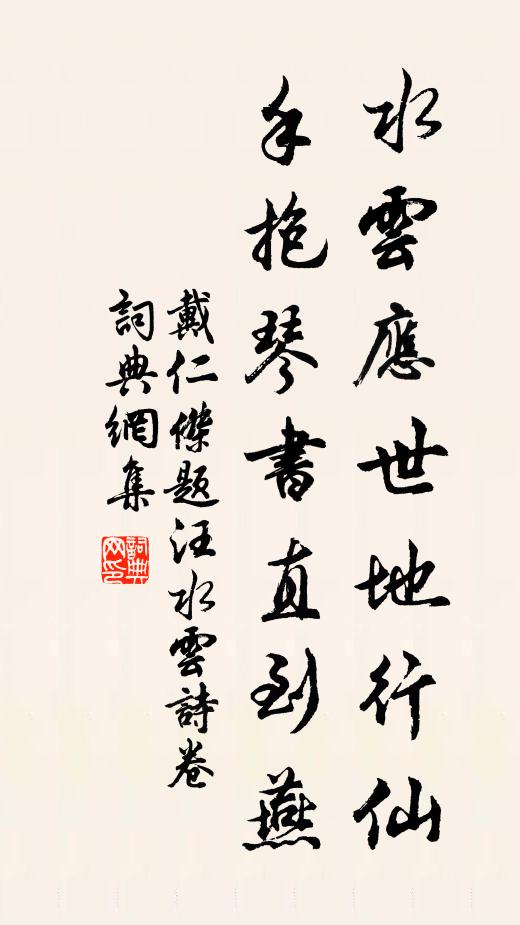 水雲應世地行仙
手抱琴書直到燕
戴仁傑題汪水雲詩卷
詞典網集
詞典网印